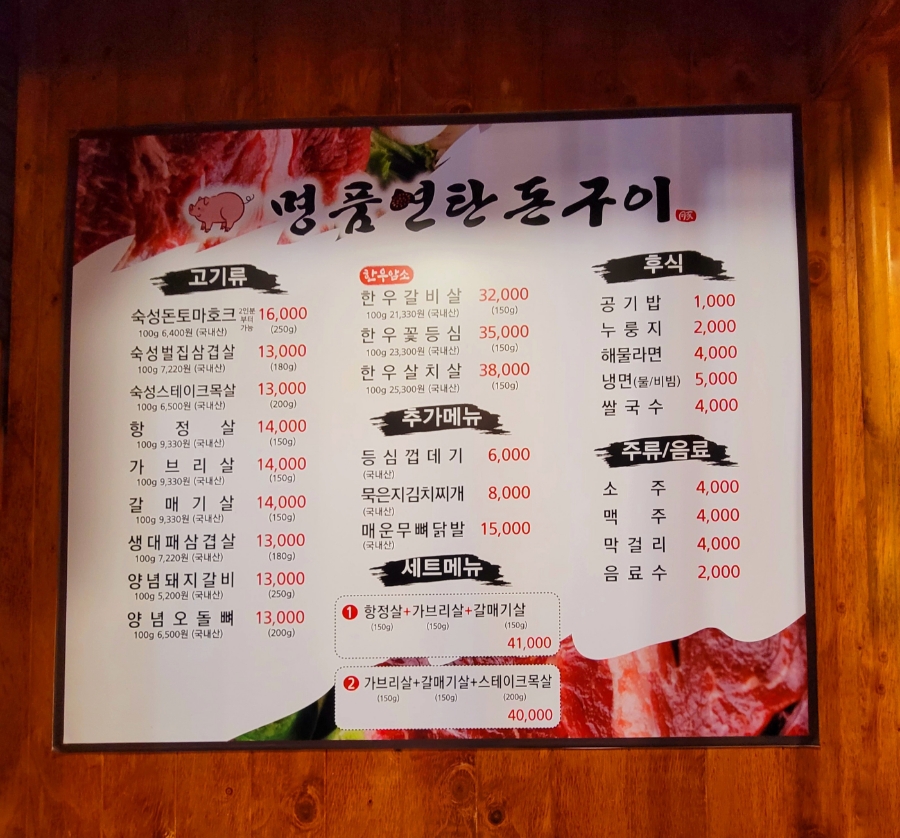 명품연탄돈구이
고기류
숙성돈토마호크 2인분부터 가능 16,000
100g 6,400원 (국내산) (250g)
숙성벌집삼겹살 13,000
100g 7,220원 (국내산) (180g)
숙성스테이크목살 13,000
100g 6,500원 (국내산) (200g)
항정살 14,000
100g 9,330원 (국내산) (150g)
가브리살 14,000
100g 9,330원 (국내산) (150g)
갈매기살 14,000
100g 9,330원 (국내산) (150g)
생대패삼겹살 13,000
100g 7,220원 (국내산) (180g)
양념돼지갈비 13,000
100g 5,200원 (국내산) (250g)
양념오돌뼈 13,000
100g 6,500원 (국내산) (200g)
한우암소
한우갈비살 32,000
100g 21,330원 (국내산) (150g)
한우꽃등심 35,000
100g 23,300원 (국내산) (150g)
한우살치살 38,000
100g 25,300원 (국내산) (150g)
추가메뉴
등심껍데기 6,000
(국내산)
묵은지김치찌개 8,000
(국내산)
매운무뼈닭발 15,000
(국내산)
세트메뉴
1 항정살+가브리살+갈매기살
(150g) (150g) (150g)
41,000
2 가브리살+갈매기살+스테이크목살
(150g) (150g) (200g)
40,000
후식
공기밥 1,000
누룽지 2,000
해물라면 4,000
냉면(물/비빔) 5,000
쌀국수 4,000
주류/음료
소주 4,000
맥주 4,000
막걸리 4,000
음료수 2,000